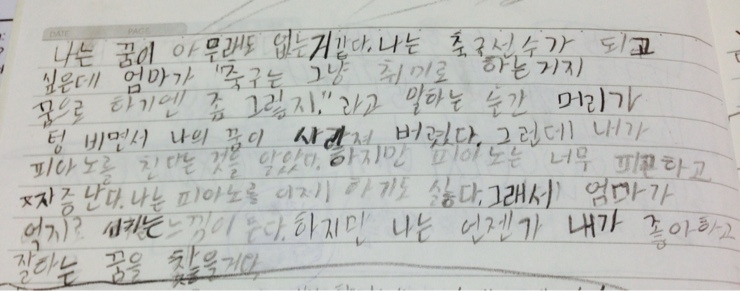 DATE PAGE
나는 꿈이 아무래도 없는거같다. 나는 축구선수가 되고
싶은데 엄마가 "축구는 그냥 취미로 하는거지
꿈으로 하기엔 좀 그렇지." 라고 말하는 순간 머리가
텅 비면서 나의 꿈이 사라져 버렸다. 그런데 내가
피아노를 친다는 것을 알았다. 하지만 피아노는 너무 피곤하고
짜증난다. 나는 피아노를 이제 하기도 싫다. 그래서 엄마가
억지로 시키는 느낌이 든다. 하지만 나는 언젠가 내가 좋아하고
잘하는 꿈을 찾을거다